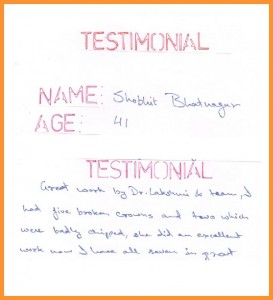 TESTIMONIAL
NAME: Shobhit Bhatnagar
AGE: 41
TESTIMONIAL
Great work by Dr. Lakshmi & team, I
had five broken crowns and two which
were badly chipped, she did an excellent
work now I have all seven in great